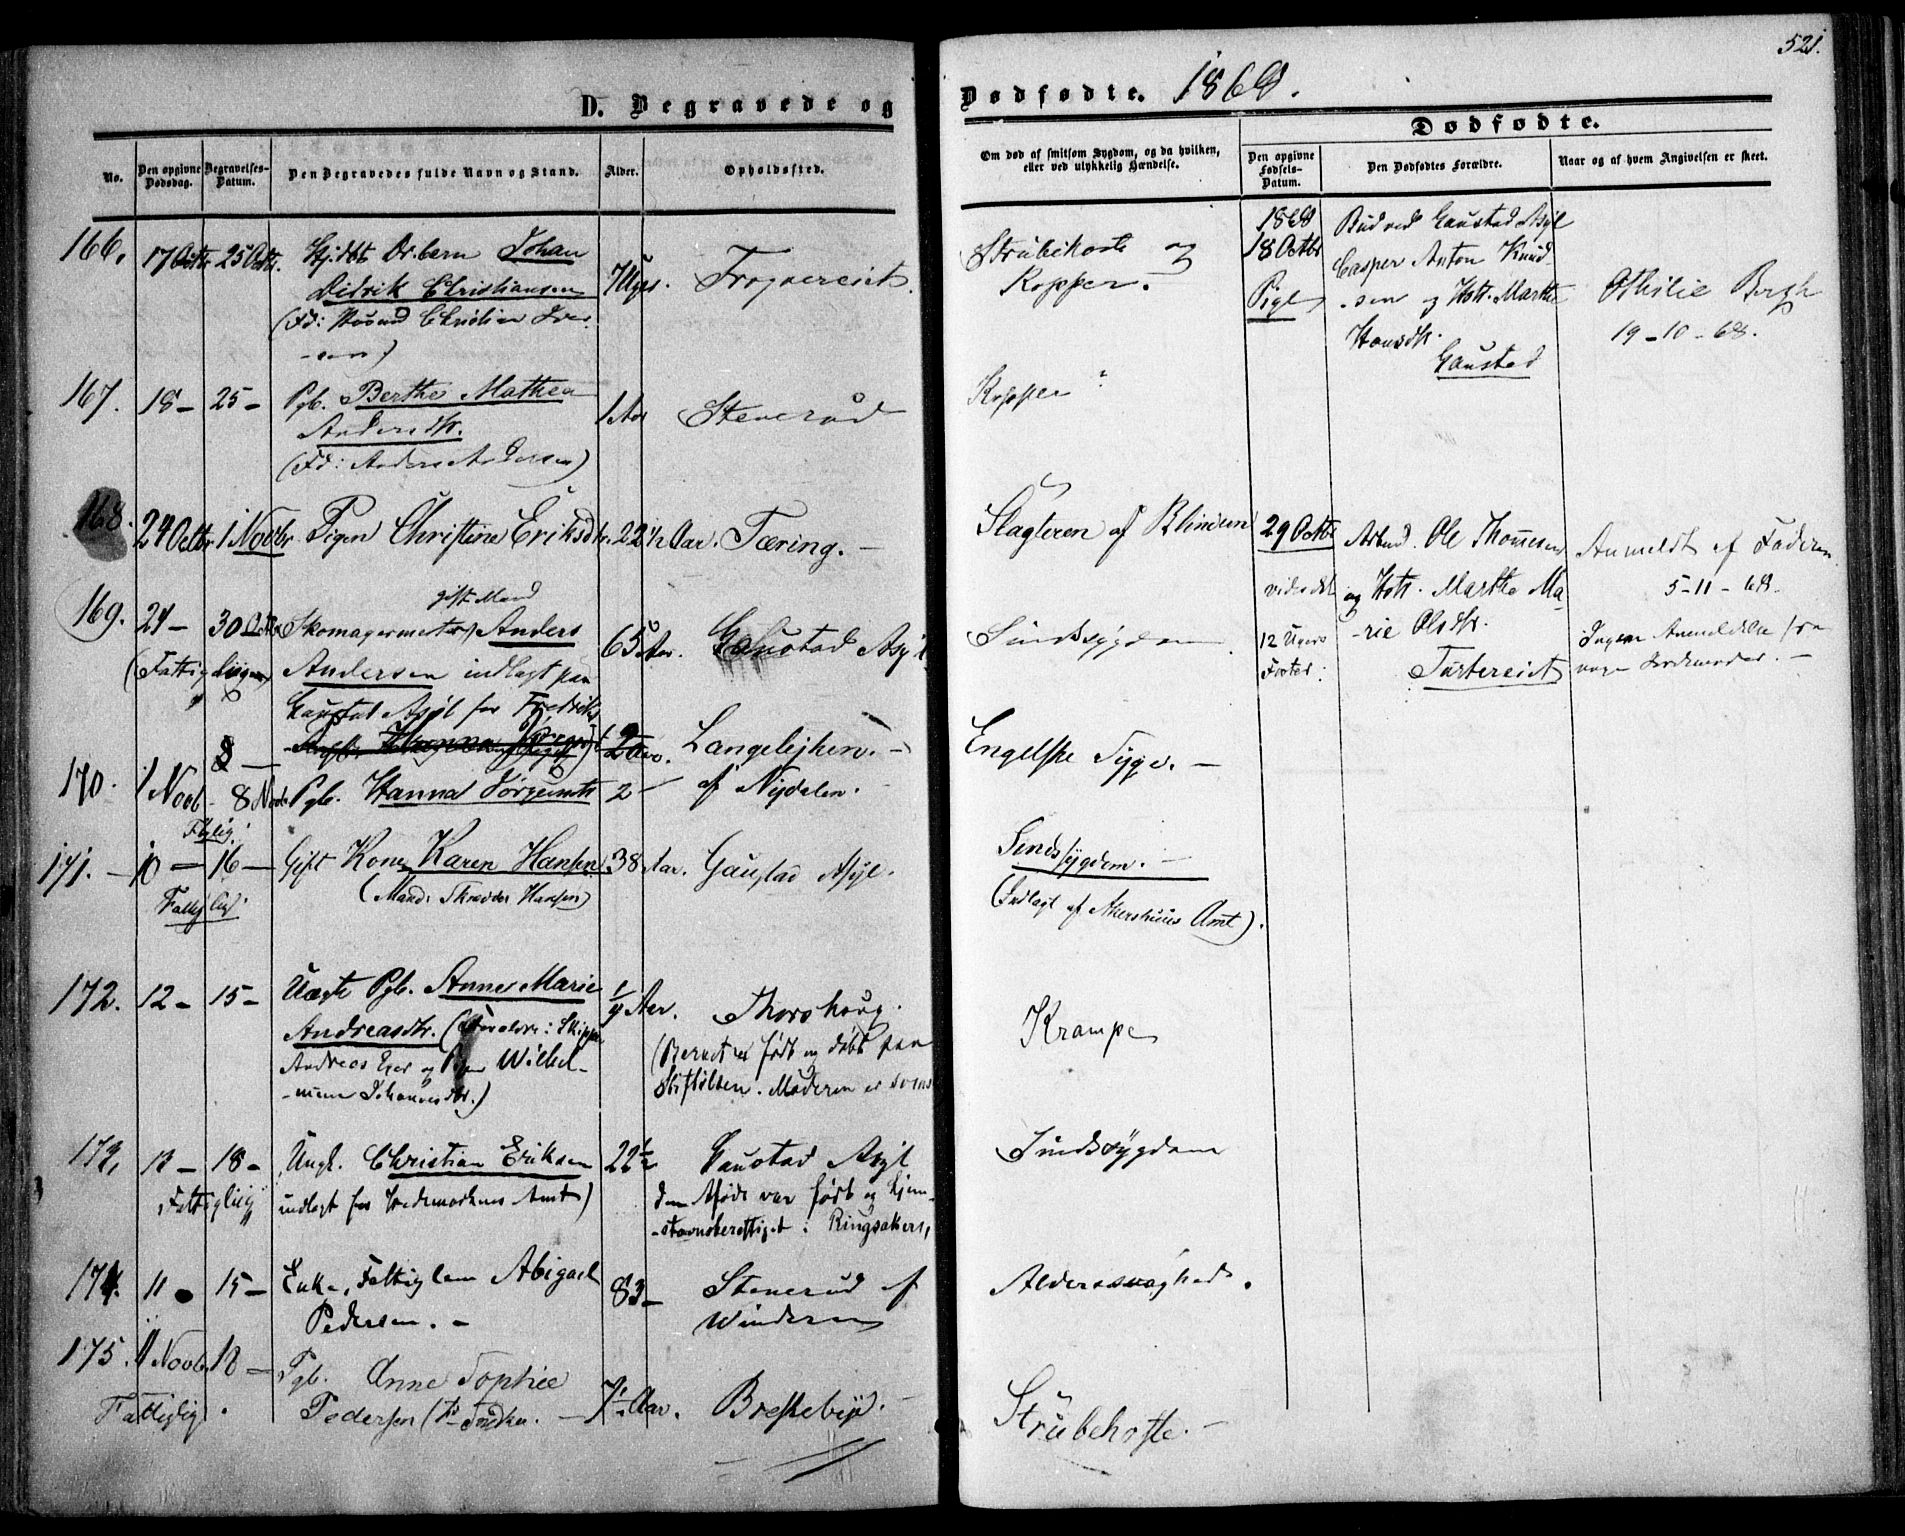 521.
D. Begravede og
Dødfødte. 1868.
No.
Den opgivne Dødsdag.
Begravelses-Datum.
Den Begravedes fulde Navn og Stand.
Alder.
Opholdssted.
Om død af smitsom Sygdom, og da hvilken,
eller ved ulykkelig Hændelse.
Dødfødte.
Den opgivne Fødsels-Datum.
Den Dødfødtes Forældre.
Naar og af hvem Angivelsen er skeet.
166. 17 Octbr 25 Octbr. Drbarn Johan
Didrik Christiansen 7 Ugs. Frognereiet.
(Fd: Husmd Christian Iver-
-sen)
Strubehoste og
Kopper.
1868
18 Octbr
Pige
Bud ved Gaustad Asyl
Casper Anton Knud-
-sen og Hstr. Marthe
Hansdtr.
Gaustad
Othilie Bergh
19-10-68.
167. 18 - 25 - Pgb. Berthe Mathea
Andersdtr. 1 Aar Stenerud
(Fd: Anders Andersen)
Kopper
168. 24 Octbr 1 Novbr Pigen Christine Eriksdtr. 22 1/2 Aar. Tæring. -
Slagteren af Blindern
29 Octbr
12 Ugers
Foster:
Arbmd. Ole Thomesen
og Hstr. Marthe Ma-
-rie Olsdtr.
Tastereiet
Anmeldt af Faderen
5-11-68.
Ingen Anmeldelse fra
nogen Jordemoder. -
169. 24 - 30 Octbr Skomagermester gift Mand Anders
(Fattig Ligen) Andersen indlagt paa 65 Aar. Gaustad Asyl
Gaustad Asyl for Fredriks
Sindssygdom
8 - 2 Aar. Langelejken. -
170. 1 Novb - 8 Novb Pgb. Hanna Jørgensdtr 2 - af Nydalen. -
Engelske Syge. -
171. - 10 - 16 - Gift Kone Karen Hansen 38 Aar. Gaustad Asyl.
(Mand: Skrædder Hansen)
Sindssygdom. -
(Indlagt af Akershuus Amt).
172. 12 - 15 - Uægte Pgb. Anne Marie
Andreasdtr. (Forældre: Skipper 1/4 Aar. Thorshaug.
Andreas og Wilhel-
-mine Johannesdtr.)
(Barnet er født og døbt paa
Stiftelsen. Moderen er
Krampe
173. 12 - 18 - Ungk. Christian Eriksen 22 1/2 Gaustad Asyl
Fattiglig indlagt for Hedemarkens Amt)
den Afdøde var født og hjem-
-stavnsberettiget i Ringsakers,
Sindssygdom
174. 11 - 15 - Enke, Fattiglem Abigael
Pedersen. - 83 - Stenerud af
Winderen
Alderssvaghed.
175. 11 Novb. 18 - Pgb. Anne Sophie
Fattiglig. Pedersen 7 1/2 Aar. Breskebÿe. -
Strubehoste. -